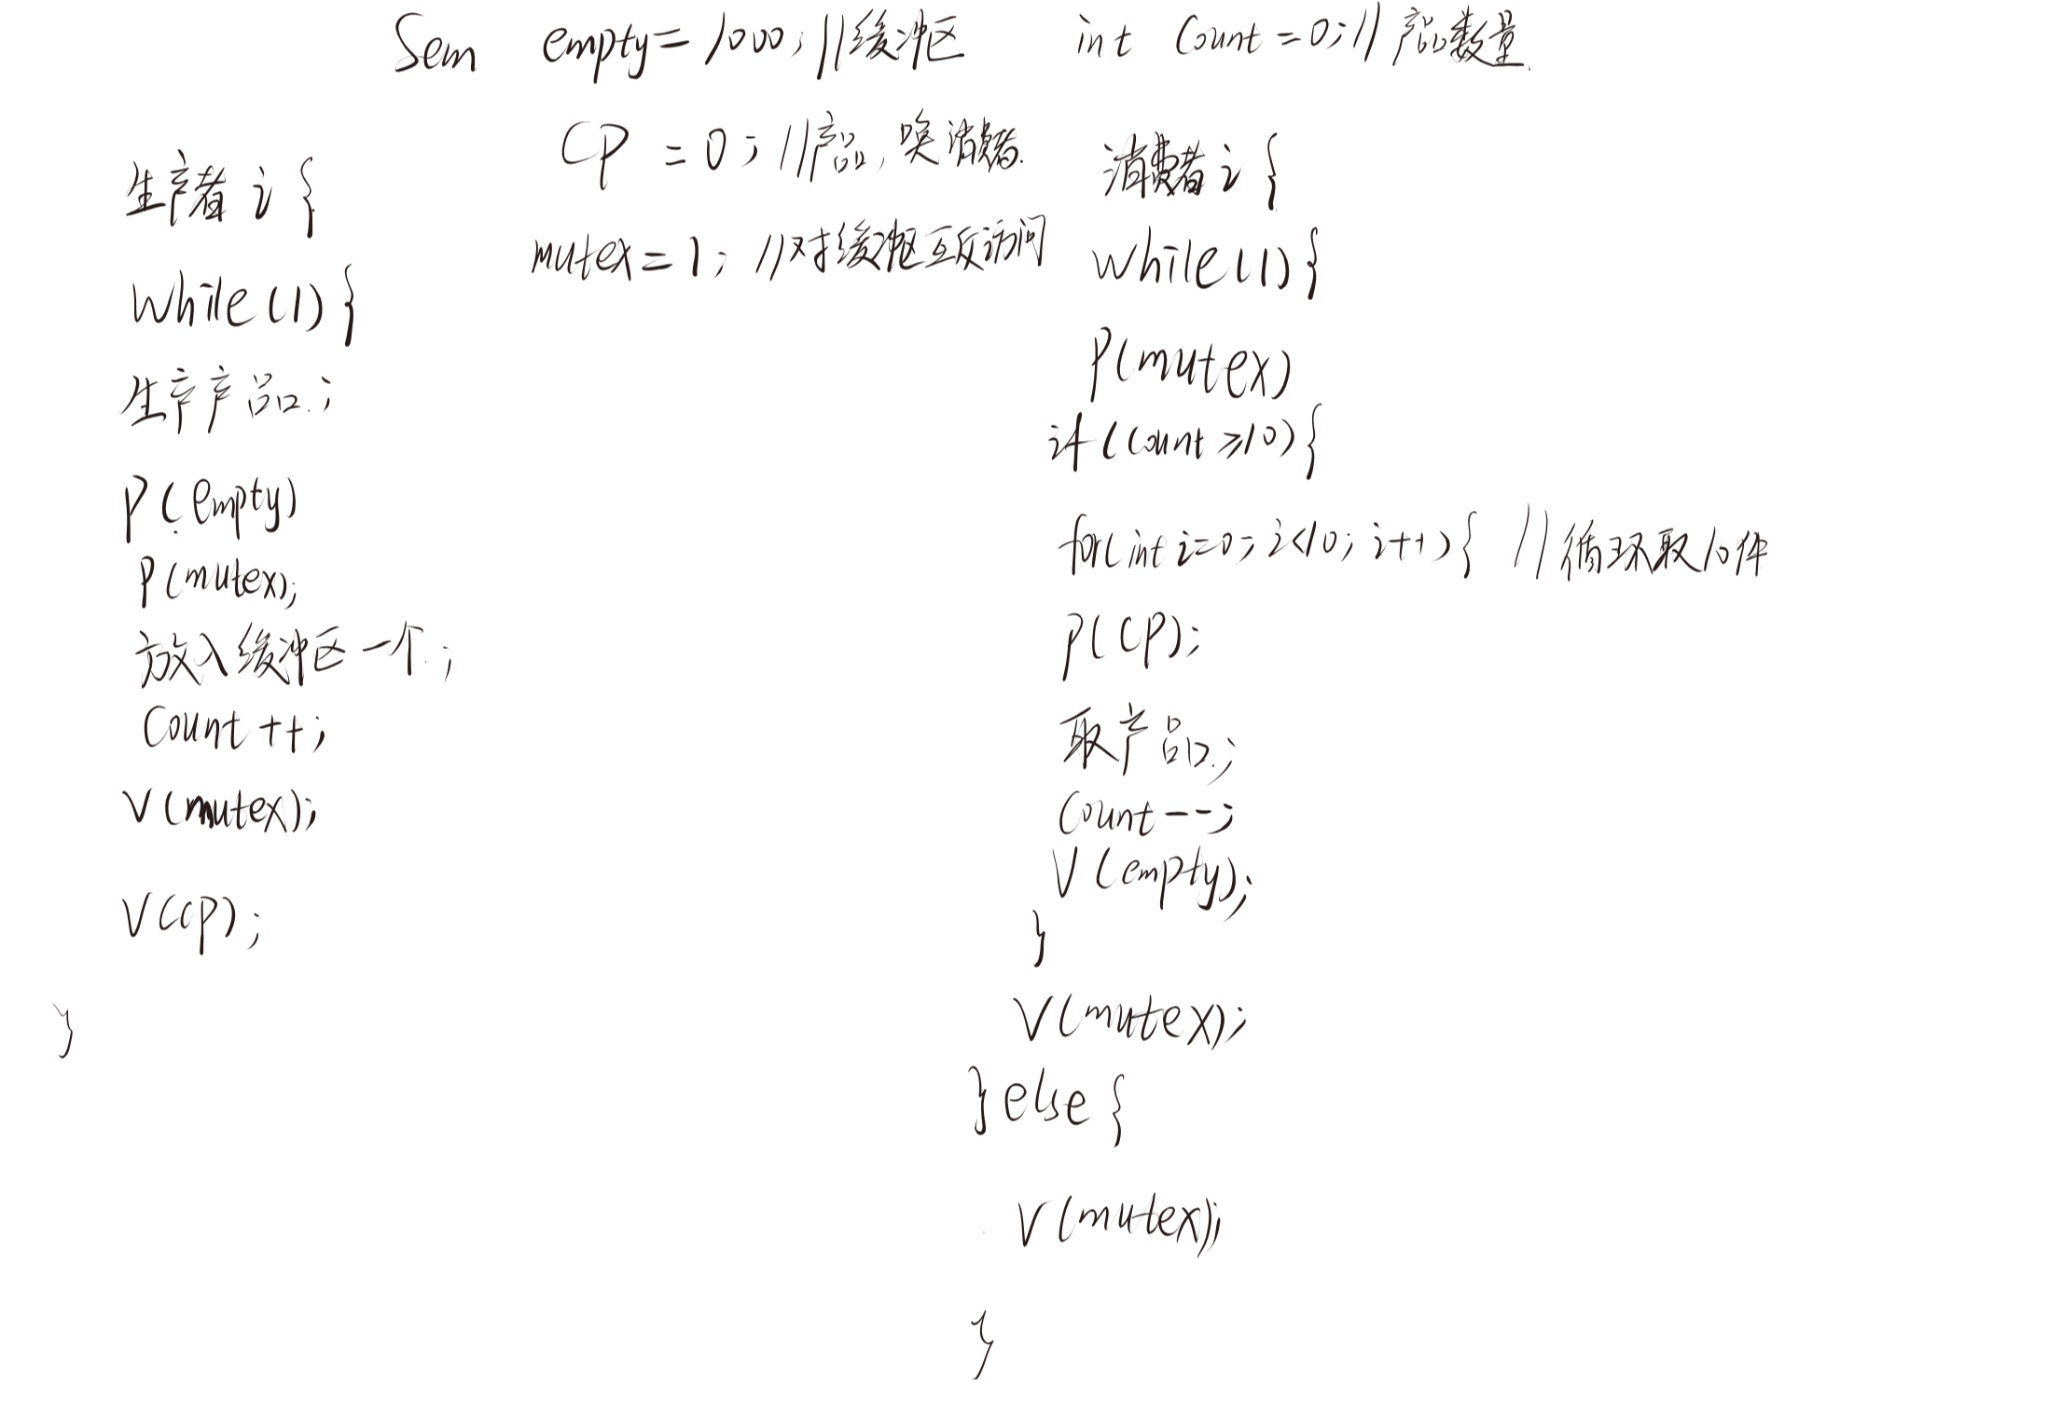 Sem empty=1000; //缓冲区 int Count=0; //产品数量.
CP = 0; //产品,唤消费者.
mutex=1; //对缓冲区互斥访问
生产者 i {
while(1){
生产产品;
P(empty)
P(mutex);
放入缓冲区一个;
Count++;
V(mutex);
V(CP);
}
消费者 i {
while(1){
P(mutex)
if(Count≥10){
for(int i=0; i<10; i++){ //循环取10件
P(CP);
取产品;
Count--;
V(empty);
}
V(mutex);
}else{
V(mutex);
}